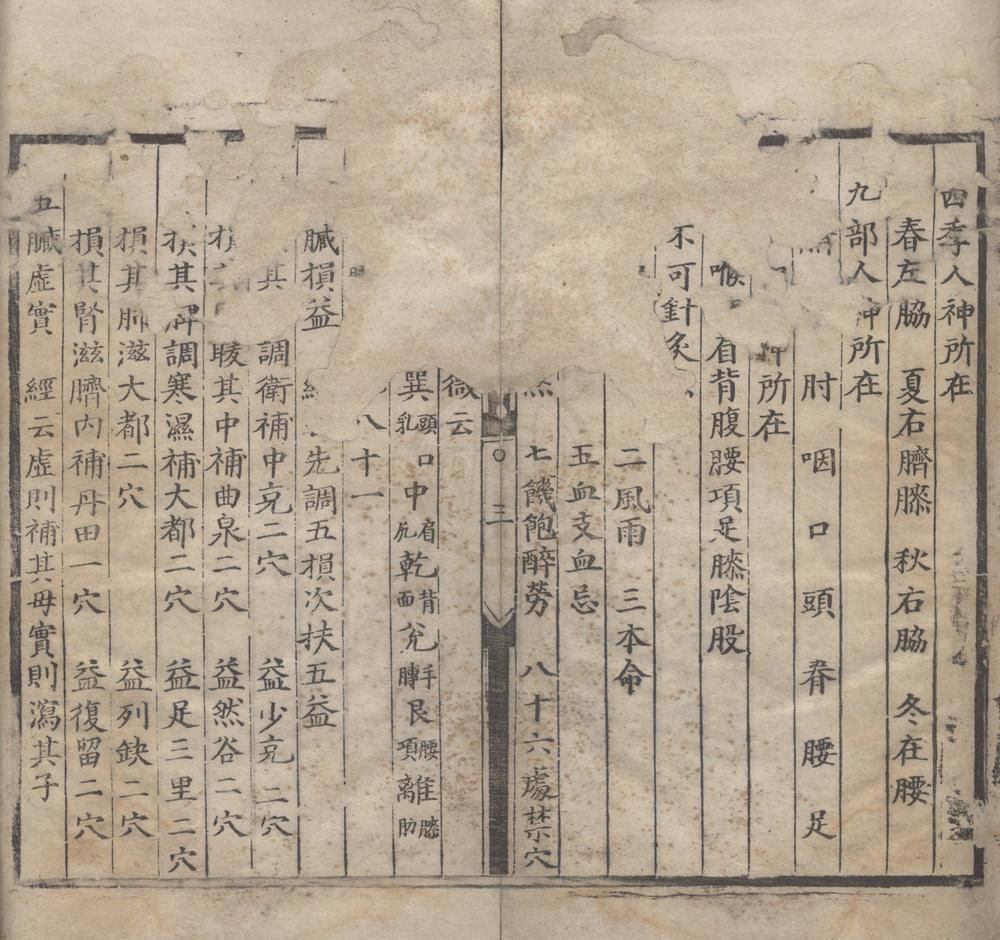 四季人神所在
春左脇 夏右臍膝 秋右脇 冬在腰
九部人神所在
肘 咽 口 頭 脊 腰 足
所在
喉 自背腹腰項足膝陰股
不可針灸
二風雨 三本命
五血支血忌
七饑飽醉勞 八十六處禁穴
三
微云
巽頭乳 口中肩尻 乾背面 兊手膊 艮腰項 離膝肋
八十一
臟損益 先調五損次扶五益
其 調衛補中亮二穴 益少亮 二穴
其 晙其中補曲泉二穴 益然谷二穴
其脾調寒濕補大都二穴 益足三里二穴
損其肺滋大都二穴 益列缺二穴
損其腎滋臍內補丹田一穴 益復留二穴
五臟虛實 經云虛則補其母實則瀉其子